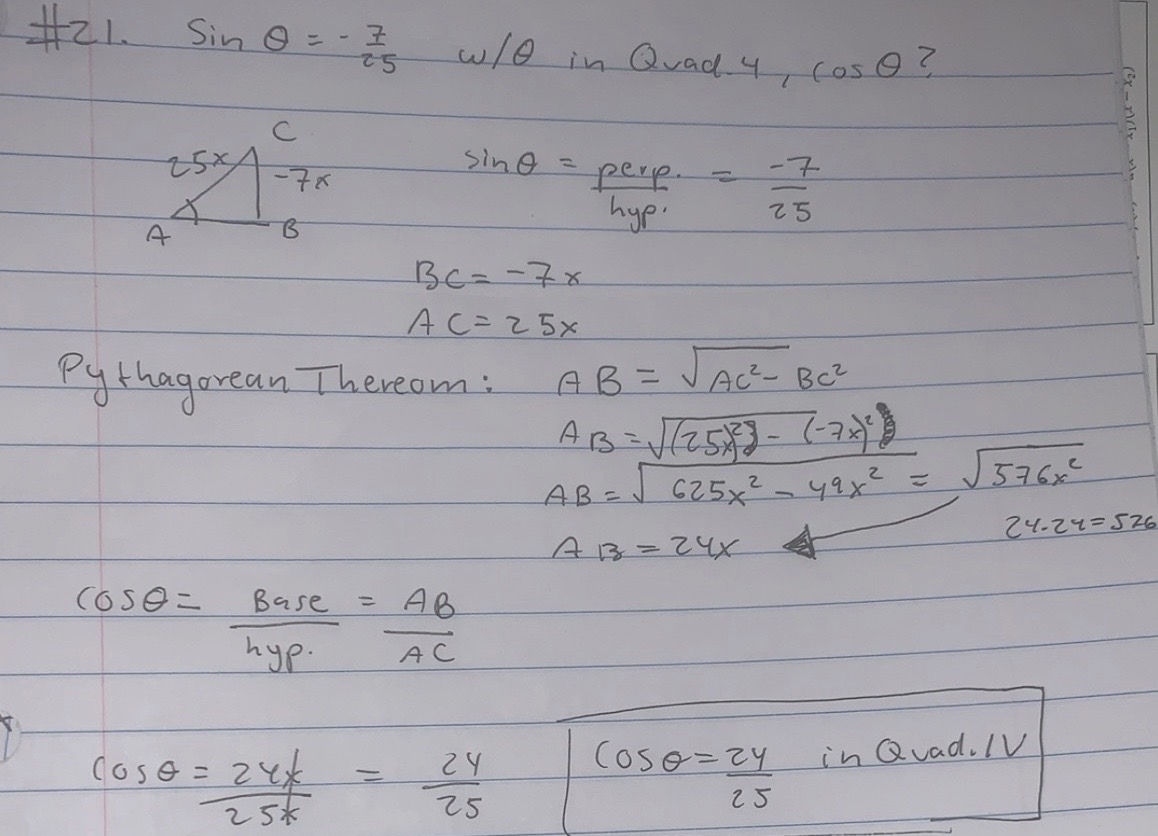 #21. Sin θ = -7/25 w/θ in Quad. 4, cos θ?
C
25x -7x
A B
sinθ = perp./hyp. = -7/25
BC = -7x
AC = 25x
Pythagorean Thereom: AB = √AC² - BC²
AB = √(25x)² - (-7x)²
AB = √625x² - 49x² = √576x²
24·24=526
AB = 24x
Cosθ = Base/hyp. = AB/AC
Cosθ = 24x/25x = 24/25
Cosθ = 24/25 in Quad. IV